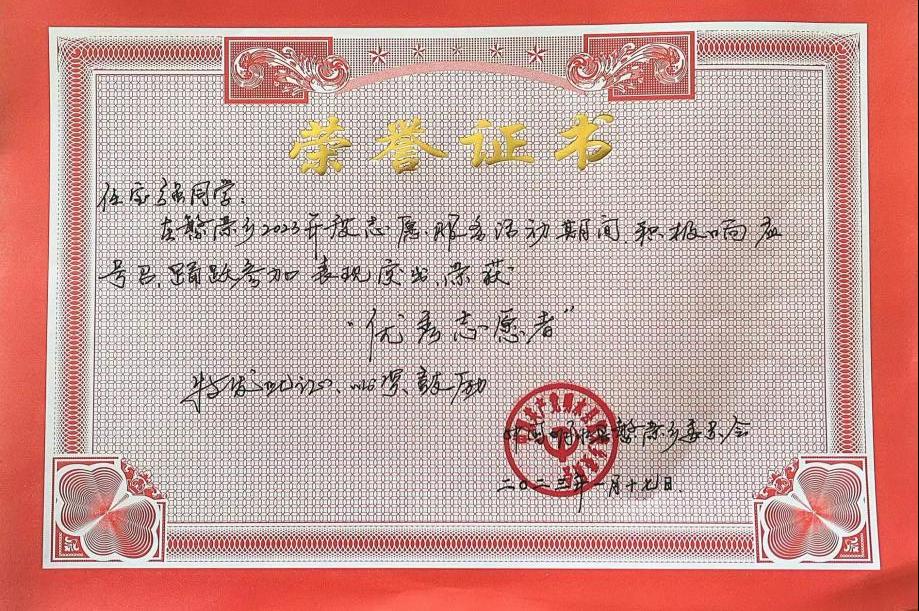 荣誉证书
任宝强同学：
在繁荣乡2023年度志愿服务活动期间，积极响应
号召，踊跃参加，表现突出，荣获
“优秀志愿者”
特发此证、以资鼓励
繁荣乡委员会
二〇二三年一月十七日.